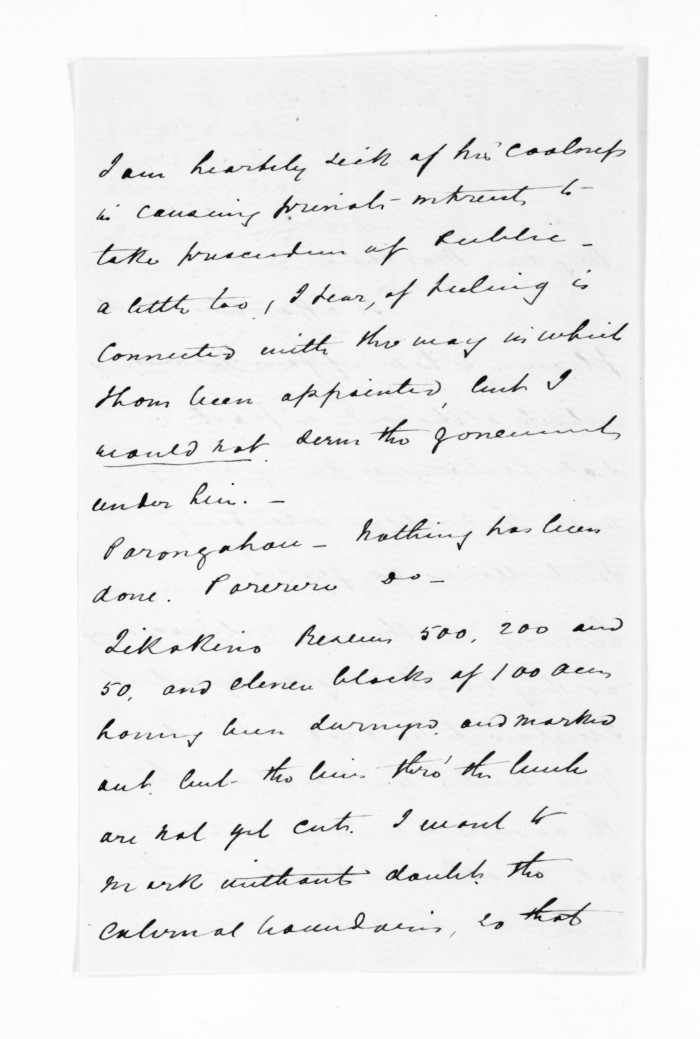 I am heartily sick of his coolness
in causing private interests to
take precedence of Public -
a little too, I fear, of feeling is
connected with the way in which
been appointed, but I
would not serve the Government
under him. -
Porongahau - Nothing has been
done. Parerera Do -
Tikokino Reserves 500, 200 and
50, and eleven blocks of 100 acres
having been surveyed and marked
out but the lines thro' the bush
are not yet cut. I want to
mark without doubt the
external boundaries, so that